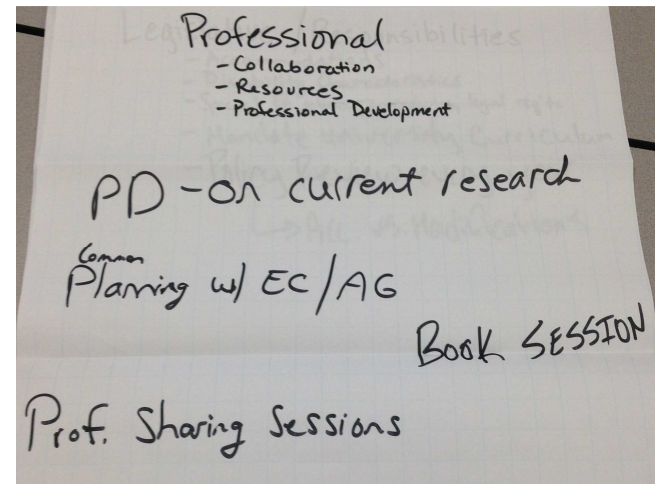 Professional
- Collaboration
- Resources
- Professional Development
PD - on current research
Common
Planning w/ EC/AG
Book SESSION
Prof. Sharing Sessions